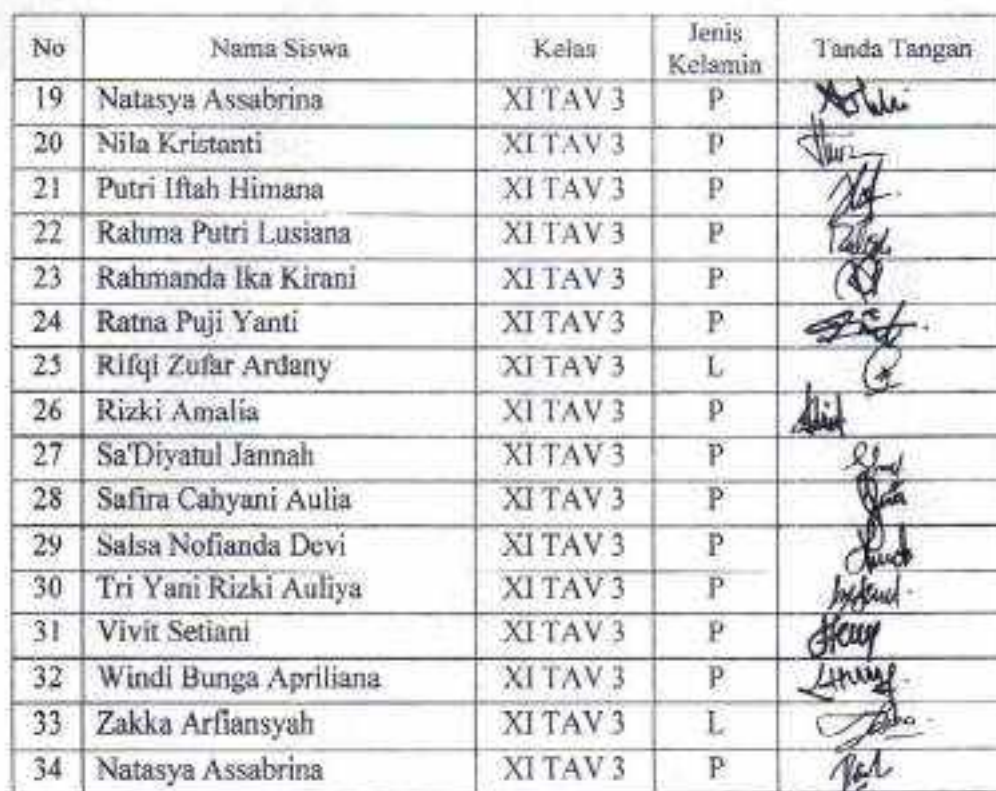 No Nama Siswa Kelas Jenis Kelamin Tanda Tangan
19 Natasya Assabrina XI TAV 3 P
20 Nila Kristanti XI TAV 3 P
21 Putri Iftah Himana XI TAV 3 P
22 Rahma Putri Lusiana XI TAV 3 P
23 Rahmanda Ika Kirani XI TAV 3 P
24 Ratna Puji Yanti XI TAV 3 P
25 Rifqi Zufar Ardany XI TAV 3 L
26 Rizki Amalia XI TAV 3 P
27 Sa'Diyatul Jannah XI TAV 3 P
28 Safira Cahyani Aulia XI TAV 3 P
29 Salsa Nofianda Devi XI TAV 3 P
30 Tri Yani Rizki Auliya XI TAV 3 P
31 Vivit Setiani XI TAV 3 P
32 Windi Bunga Apriliana XI TAV 3 P
33 Zakka Arfiansyah XI TAV 3 L
34 Natasya Assabrina XI TAV 3 P